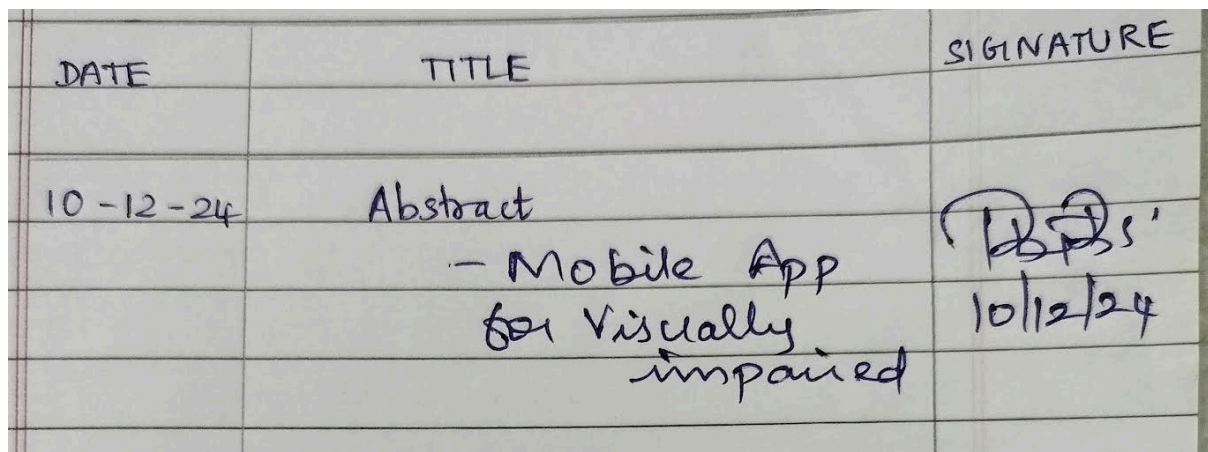 DATE TITLE SIGINATURE
10-12-24 Abstract
- Mobile App
for Visually 10/12/24
impaired